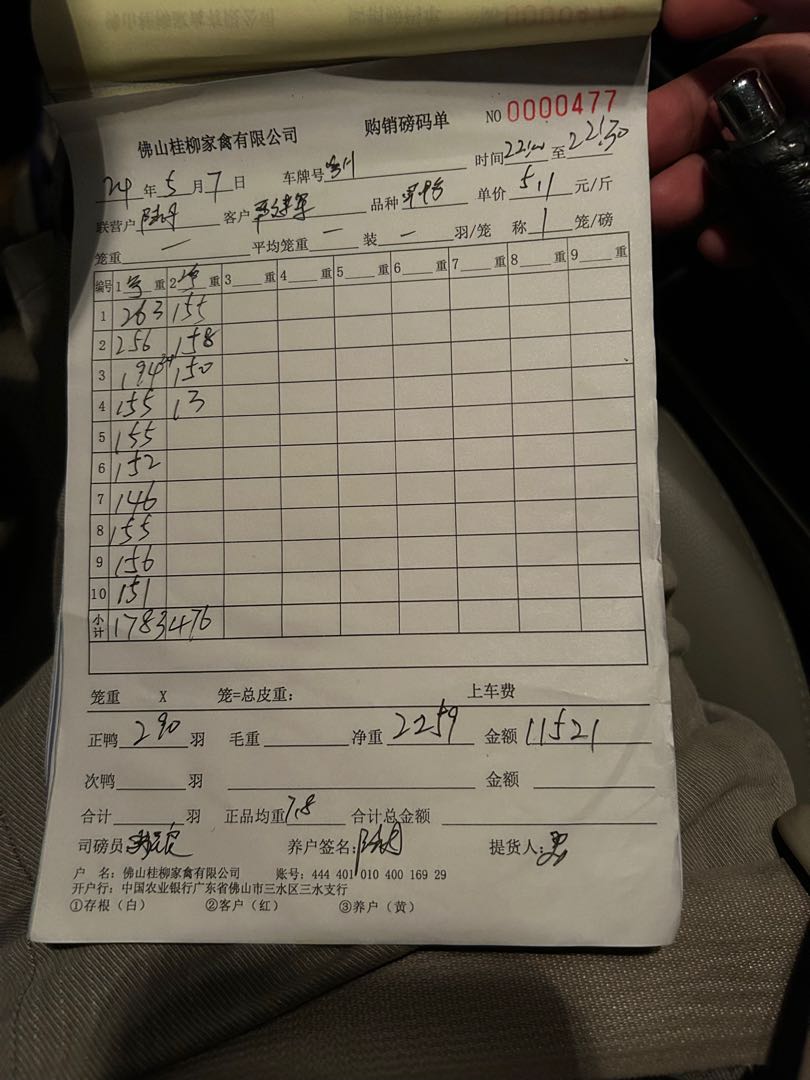 佛山桂柳家禽有限公司 购销磅码单 NO 0000477
24 年 5 月 7 日 车牌号 时间 22:00 至 22:30
联营户 客户 品种 单价 5.1 元/斤
笼重 — 平均笼重 — 装 — 羽/笼 称 1 笼/磅
编号 1 号 重 2 号 重 3 重 4 重 5 重 6 重 7 重 8 重 9 重
1 263 155
2 256 158
3 194 150
4 155 13
5 155
6 152
7 146
8 155
9 156
10 151
小计 1783 476
笼重 X 笼=总皮重： 上车费
正鸭 290 羽 毛重 净重 2259 金额 11521
次鸭 羽 金额
合计 羽 正品均重 7.8 合计总金额
司磅员 养户签名： 提货人：
户 名：佛山桂柳家禽有限公司 账号：444 401 010 400 169 29
开户行：中国农业银行广东省佛山市三水区三水支行
①存根（白） ②客户（红） ③养户（黄）